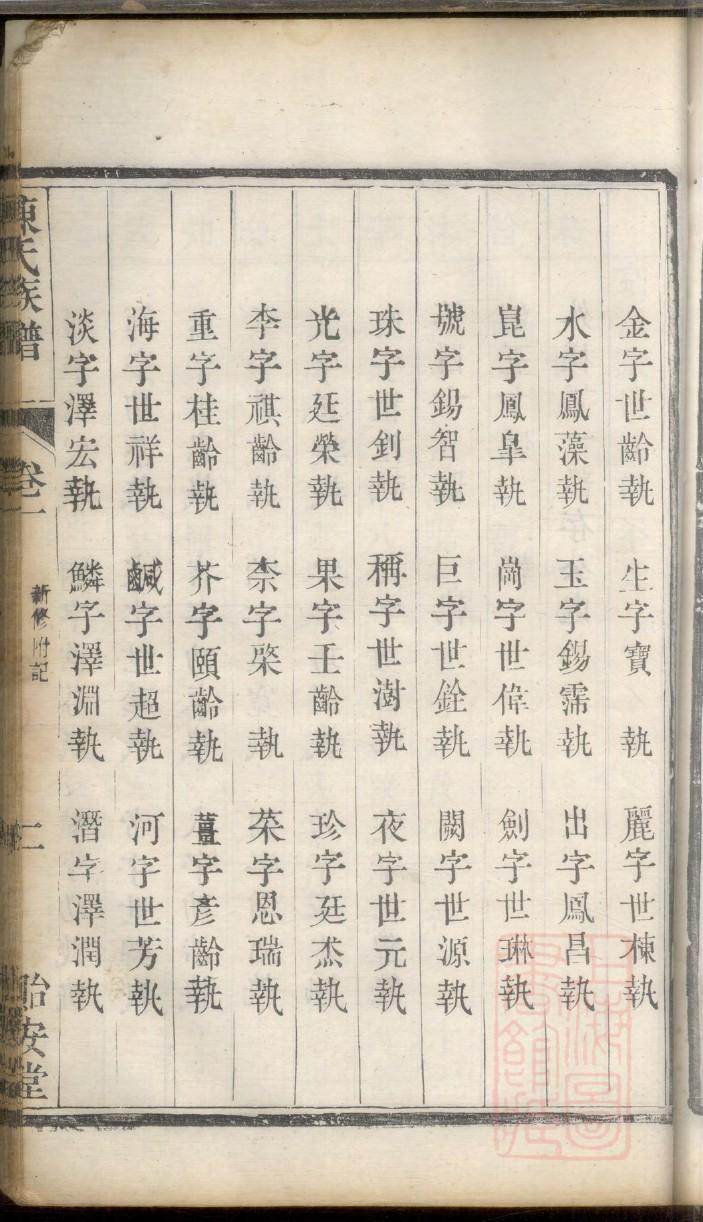 金字世齡執 生字寶 執 麗字世棟執
水字鳳藻執 玉字錫霈執 出字鳳昌執
崑字鳳臯執 崗字世偉執 劍字世琳執
號字錫智執 巨字世銓執 闕字世源執
珠字世釗執 稱字世澍執 夜字世元執
光字廷榮執 果字壬齡執 珍字廷杰執
李字祺齡執 柰字棨 執 菜字恩瑞執
重字桂齡執 芥字頤齡執 薑字彥齡執
海字世祥執 鹹字世超執 河字世芳執
淡字澤宏執 鱗字澤淵執 潛字澤潤執
陳氏族譜 卷一 新修附記 二 貽安堂
上海圖書館藏